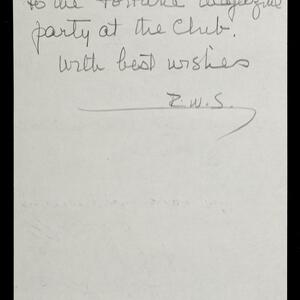 to the Fortune magazine
party at the Club.
With best wishes
R.W.S.